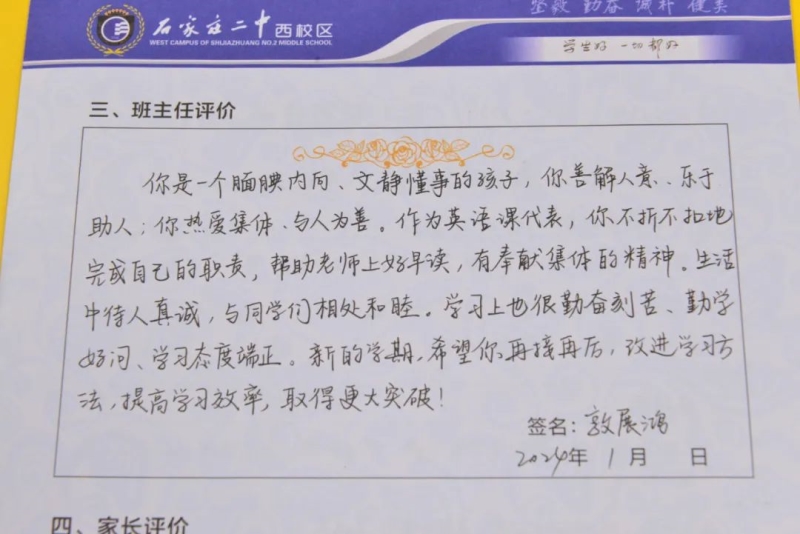 石家庄二中西校区
WEST CAMPUS OF SHIJIAZHUANG NO.2 MIDDLE SCHOOL
坚毅 勤奋 诚朴 健美
学生好 一切都好
三、班主任评价
你是一个腼腆内向、文静懂事的孩子，你善解人意、乐于
助人；你热爱集体、与人为善。作为英语课代表，你不折不扣地
完成自己的职责，帮助老师上好早读，有奉献集体的精神。生活
中待人真诚，与同学们相处和睦。学习上也很勤奋刻苦、勤学
好问、学习态度端正。新的学期，希望你再接再后，改进学习方
法，提高学习效率，取得更大突破！
签名：敦展鸿
2024年 1月 日
四、家长评价